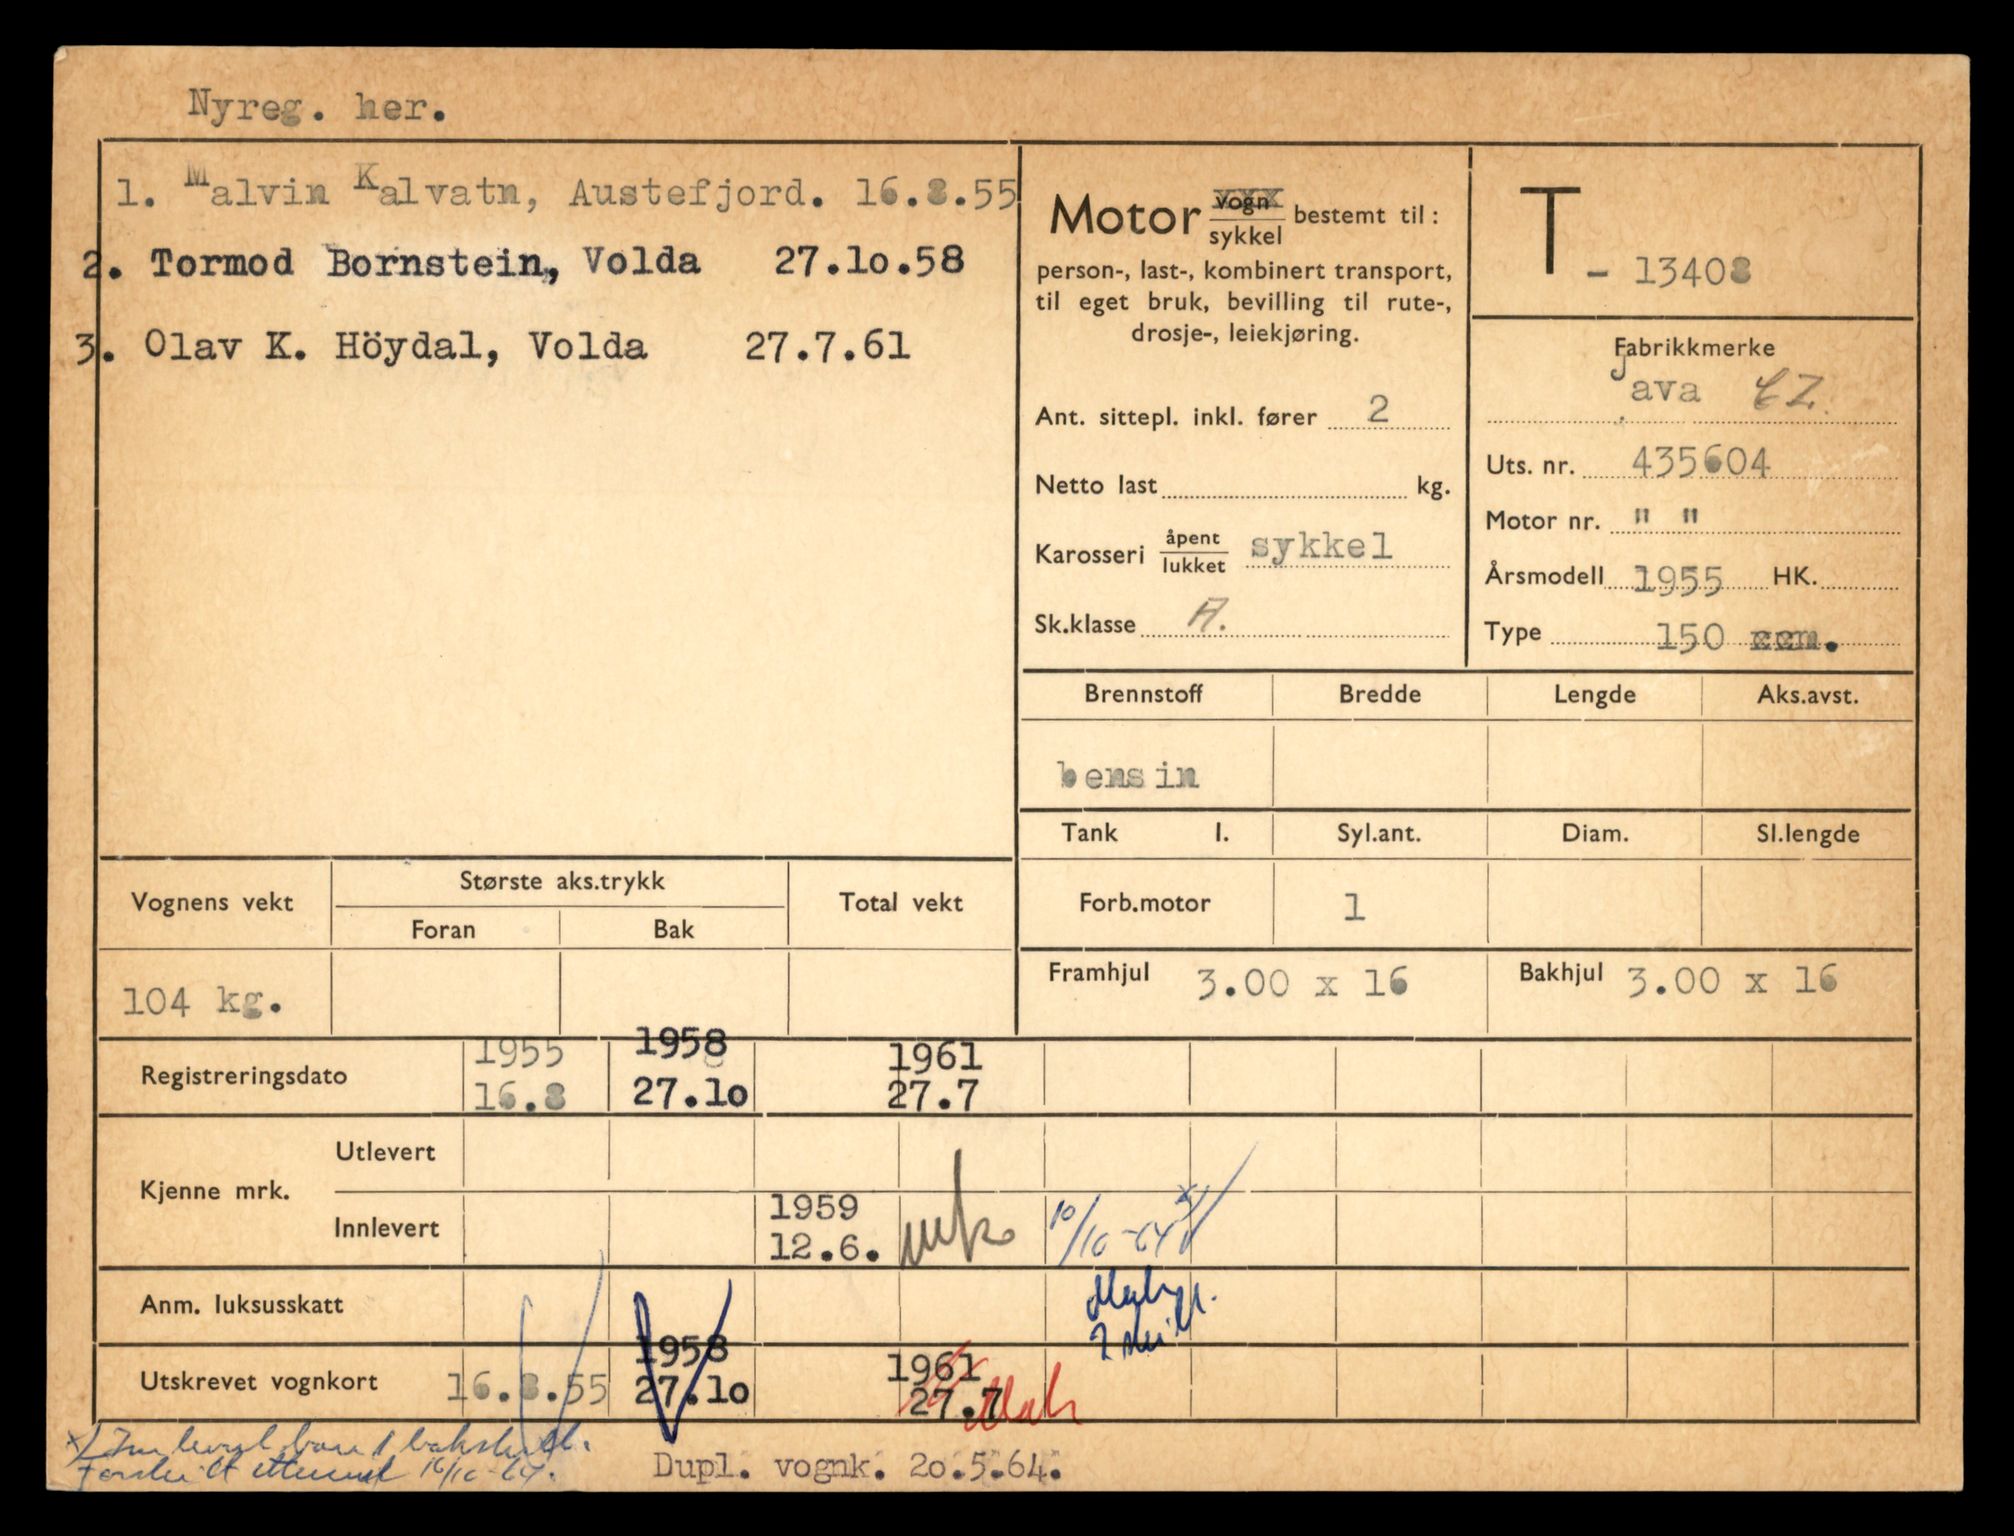 Nyreg. her.
1. Malvin Kalvatn, Austefjord. 16.8.55
2. Tormod Bornstein, Volda 27.10.58
3. Olav K. Höydal, Volda 27.7.61
Motor vogn sykkel bestemt til:
person-, last-, kombinert transport,
til eget bruk, bevilling til rute-,
drosje-, leiekjøring.
Ant. sittepl. inkl. fører 2
Netto last kg.
Karosseri åpent lukket sykkel
Sk.klasse A.
T - 13408
Fabrikkmerke
Java CZ.
Uts. nr. 435604
Motor nr. " "
Årsmodell 1955 HK.
Type 150 ccm.
Brennstoff Bredde Lengde Aks.avst.
bensin
Tank l. Syl.ant. Diam. Sl.lengde
Forb.motor 1
Framhjul 3.00 x 16 Bakhjul 3.00 x 16
Vognens vekt Største aks.trykk Total vekt
Foran Bak
104 kg.
1955 1958 1961
Registreringsdato
16.8 27.10 27.7
Kjenne mrk.
Utlevert
Innlevert
1959
12.6.
10/10-64 x)
Anm. luksusskatt
2 skilt
1958 1961
Utskrevet vognkort 16.8.55 27.10 27.7
x) Innlevert bare 1 bakskilt.
Forskilt ettersendt 16/10-64.
Dupl. vognk. 20.5.64.